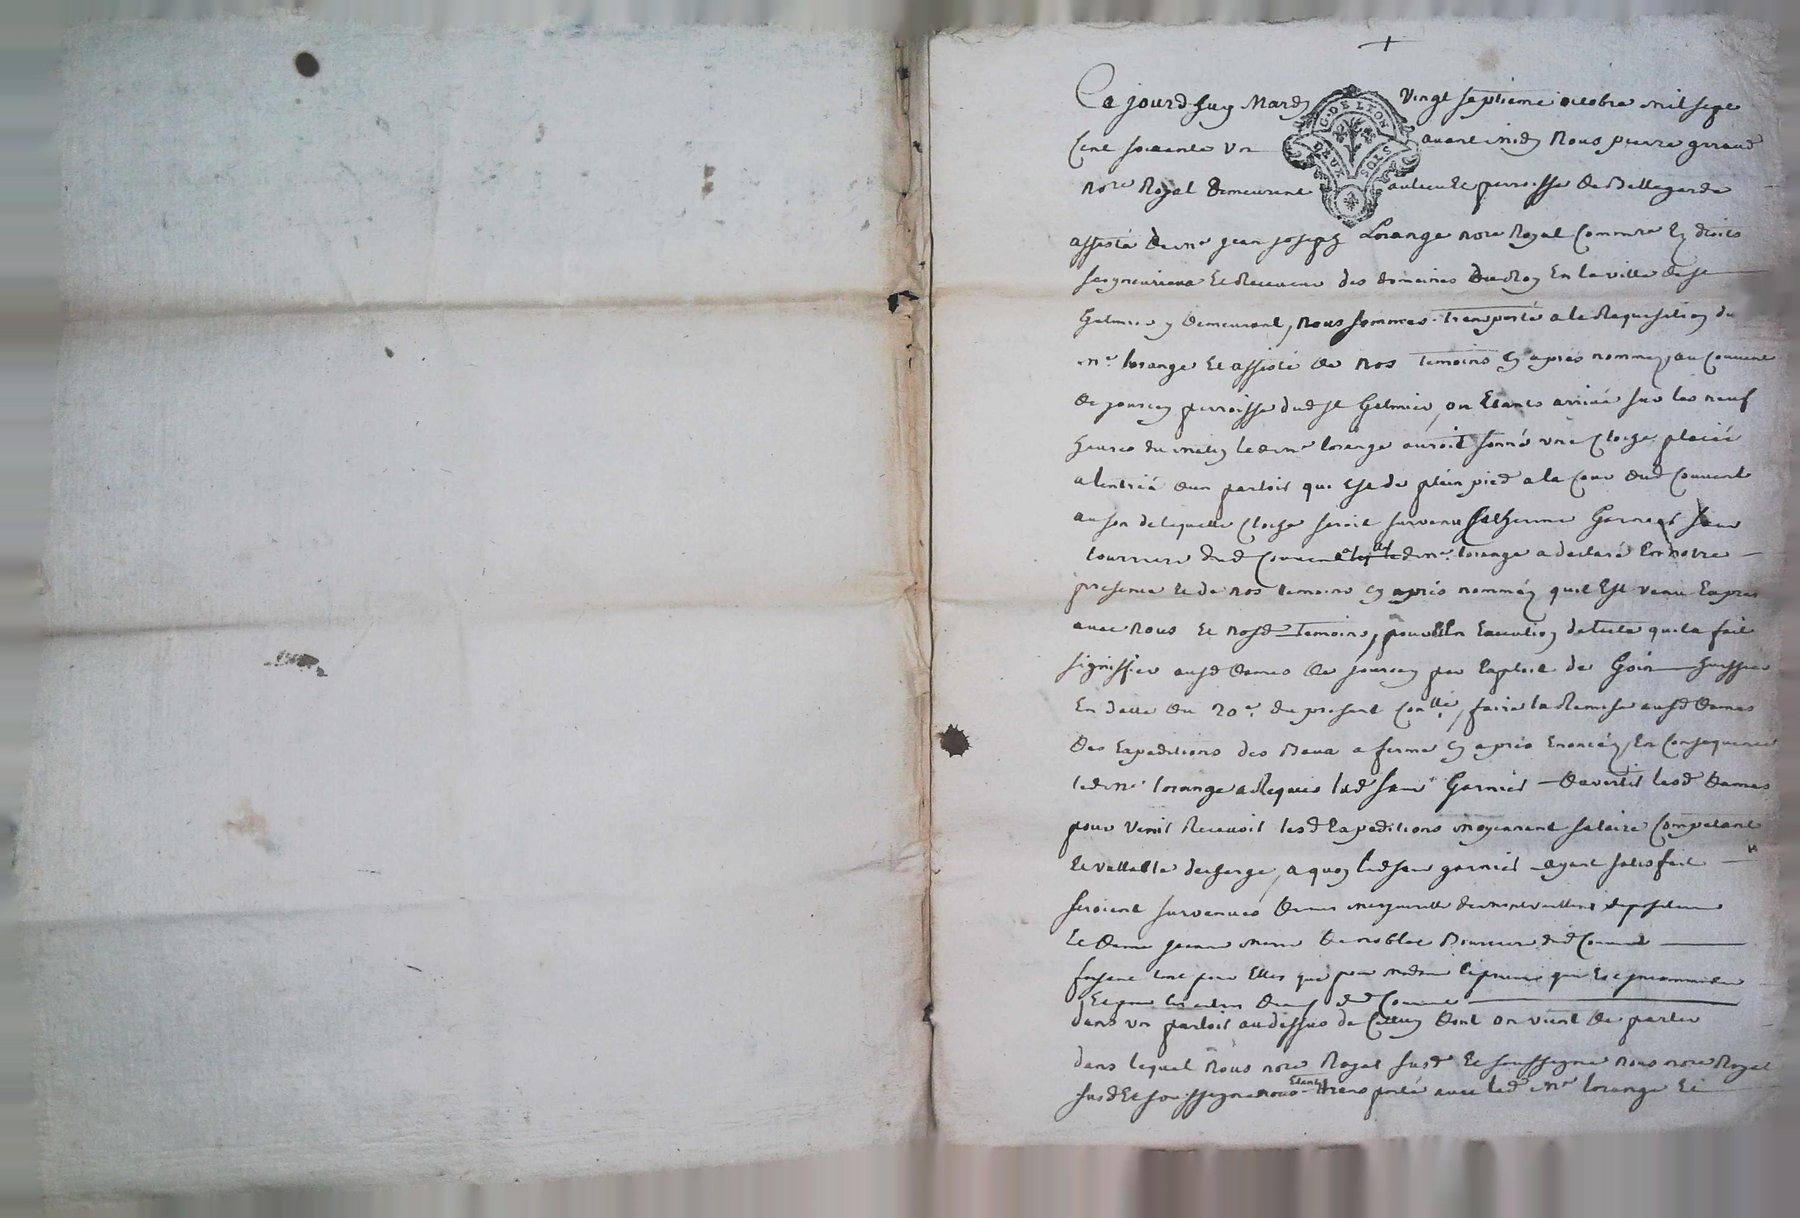 +
Ce jourdhuy Mardy vingt septieme octobre mil sept
G. DE LYON
DEUX SOLS
Cent soixante un avant midy Nous pierre giraud
nore Royal demeurant au lieu et perroisse de Bellegarde
assisté de me jean joseph Lorange nore Royal Commre Ez droits
seigneuriaux et Receveur des domaines du Roy En la ville de st
Galmier y demeurant, nous sommes transporté a la Requisition du
me lorange Et assisté de nos temoins cy apres nommez, au Couvent
de jourcey perroisse dud st Galmier, ou Etants arrivé sur les neuf
heures du matin led me lorange auroit sonné une Cloche placée
a lentrée dun parloir qui Est de plain pied a la Cour dud Couvent
au son de laquelle Cloche seroit survenue Catherine Garnier sœur
tourriere dud Couvent led me lorange a declaré En notre
presence et de nos temoins cy apres nommés quil Est venu Expres
avec nous et nosd temoins, pour En Execution de lacte quil a fait
signiffier ausd dames de jourcey par Exploit de Goin huissier
En datte du 20e du present Conllé, faire la Remise ausd dames
des Expeditions des Baux a ferme cy apres Enoncés, En Consequence
led me lorange a Requis lad sœur Garnier davertir lesd dames
pour venir Recevoir lesd Expeditions moyennant salaire Competant
et vallable decharge, a quoy lad sœur garnier ayant satisfait
seroient survenues dame depositaire
Et dame jeanne marie de noblet Boursiere dud Couvent
faisant tant pour Elles que pour madame la prieure qui Est
Et pour les autres dames dud Couvent
dans un parloir au dessus de Celluy dont on vient de parler
dans lequel Nous nore Royal susd Et soussigné nous nore Royal
susd Et soussigné nous Etant transporté avec led me lorange Et